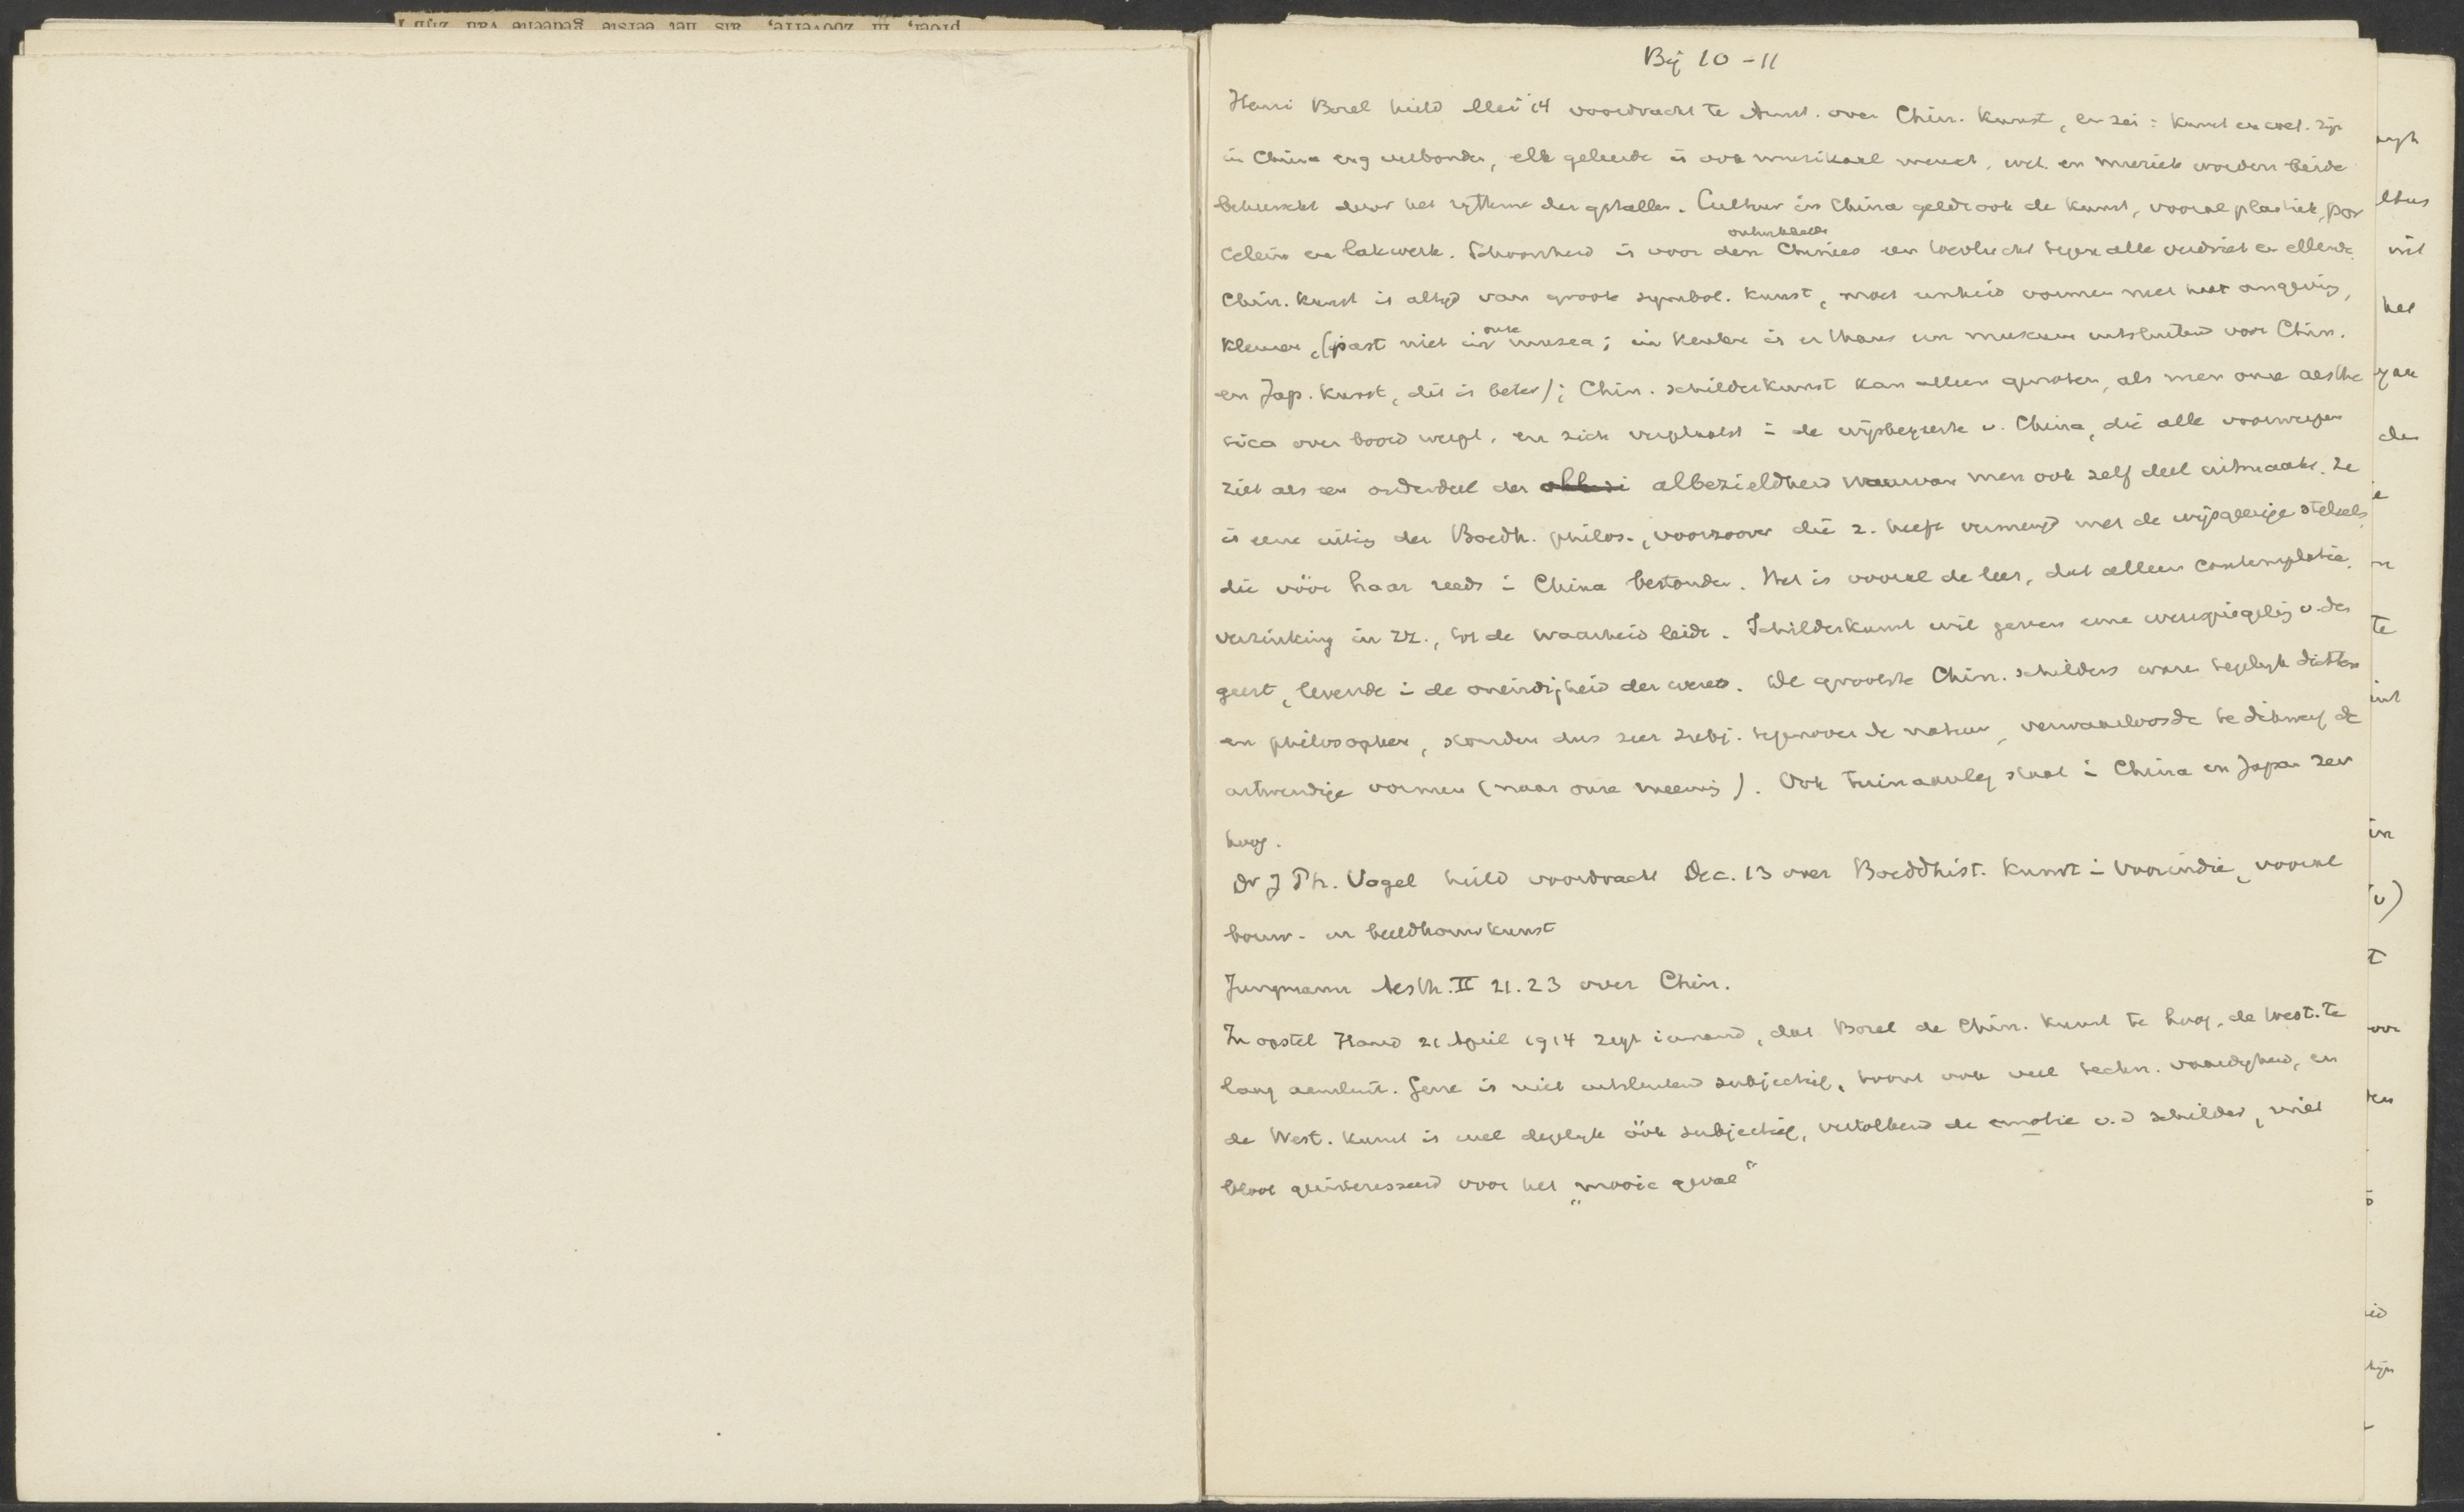 Bij 10-11
Henri Borel hield Mei '14 voordracht te Amst. over Chin. Kunst, en zei: Kunst en wet. zijn
in China eng verbonden, elk geleerde is ook muzikaal mensch, wet. en muziek worden beide
beheerscht door het rythme der getallen. Cultuur in China geldt ook de kunst, vooral plastiek, por
celein en lakwerk. Schoonheid is voor den ontwikkelde Chinees een toevlucht tegen alle verdriet en ellende.
Chin. Kunst is altijd van groote symbol. Kunst, moet eenheid vormen met haar omgeving,
(past niet in onze musea; in Keulen is er thans een museum uitsluitend voor Chin.
en Jap. Kunst, dit is beter); Chin. schilderkunst kan alleen genoten, als men onze aesthe
tica over boord werpt, en zich verplaatst i de wijsbegeerte v. China, die alle voorwerpen
ziet als een onderdeel der albezieldheid waarvan men ook zelf deel uitmaakt. Ze
is eene uiting der Boedh. philos., voorzoover die z. heeft vermengd met de wijsgeerige stelsels,
die vóór haar reeds i China bestonden. Het is vooral de leer, dat alleen contemplatie,
verzinking in zz., tot de waarheid leidt. Schilderkunst wil geven eene weerspiegeling v. den
geest, levende i de oneindigheid der wereld. De grootste Chin. schilders waren tegelijk dichters
en philosophen, stonden dus zeer subj. tegenover de natuur, verwaarloosde dikwerf de
uitwendige vormen (naar onze meening). Ook tuinaanleg staat i China en Japan zeer
hoog.
Dr J Ph. Vogel hield voordracht Dec. 13 over Boeddhist. Kunst i Voorindie, vooral
bouw- en beeldhouwkunst
Jungmann Aesth. II 21.23 over Chin.
In opstel Stand 21 April 1914 zegt iemand, dat Borel de Chin. Kunst te hoog, de West. te
laag aanslaat. Gene is niet uitsluitend subjectief, toont ook veel techn. vaardigheid, en
de West. Kunst is wel degelijk óók subjectief, vertolkend de emotie v.d schilder, niet
bloot geinteresseerd voor het „mooie geval"